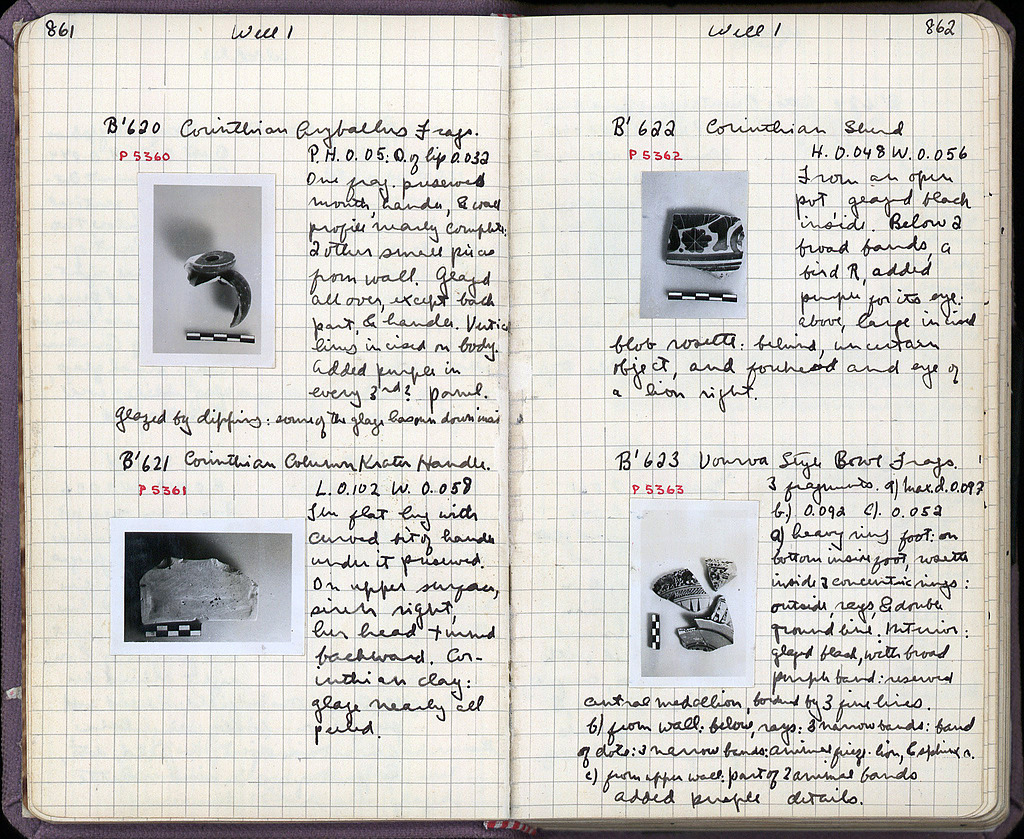 861 Well 1
B'620 Corinthian Aryballus Frags.
P 5360
P.H. 0.05: D. of lip 0.032
One frag. preserves
mouth, handle, & wall
profile nearly complete:
2 other small pieces
from wall. Glazed
all over, except back
part, & handle. Vertical
lines incised on body.
Added purple in
every 3rd? panel.
Glazed by dipping: some of the glaze has run down inside
B'621 Corinthian Column Krater Handle.
P 5361
L. 0.102 W. 0.058
The flat lug with
curved bit of handle
under it preserved.
On upper surface,
siren right,
her head turned
backward. Cor-
inthian clay:
glaze nearly all
peeled.
Well 1 862
B'622 Corinthian Sherd
P 5362
H. 0.048 W. 0.056
From an open
pot, glazed black
inside. Below 2
broad bands, a
bird R, added
purple for its eye:
above, large incised
blob rosette: behind, uncertain
object, and forehead and eye of
a lion right.
B'623 Vourva Style Bowl Frags.
P 5363
3 fragments. a) Max. d. 0.097
b.) 0.092 c). 0.052
a) heavy ring foot: on
bottom inside foot, rosette
inside 3 concentric rings:
outside, rays, & double
ground line. Interior:
glazed black, with broad
purple band: reserved
central medallion, bordered by 3 fine lines.
b) from wall. below, rays: 3 narrow bands: band
of dots: 3 narrow bands: animal frieze. lion, & sphinx r.
c) from upper wall. part of 2 animal bands
added purple details.